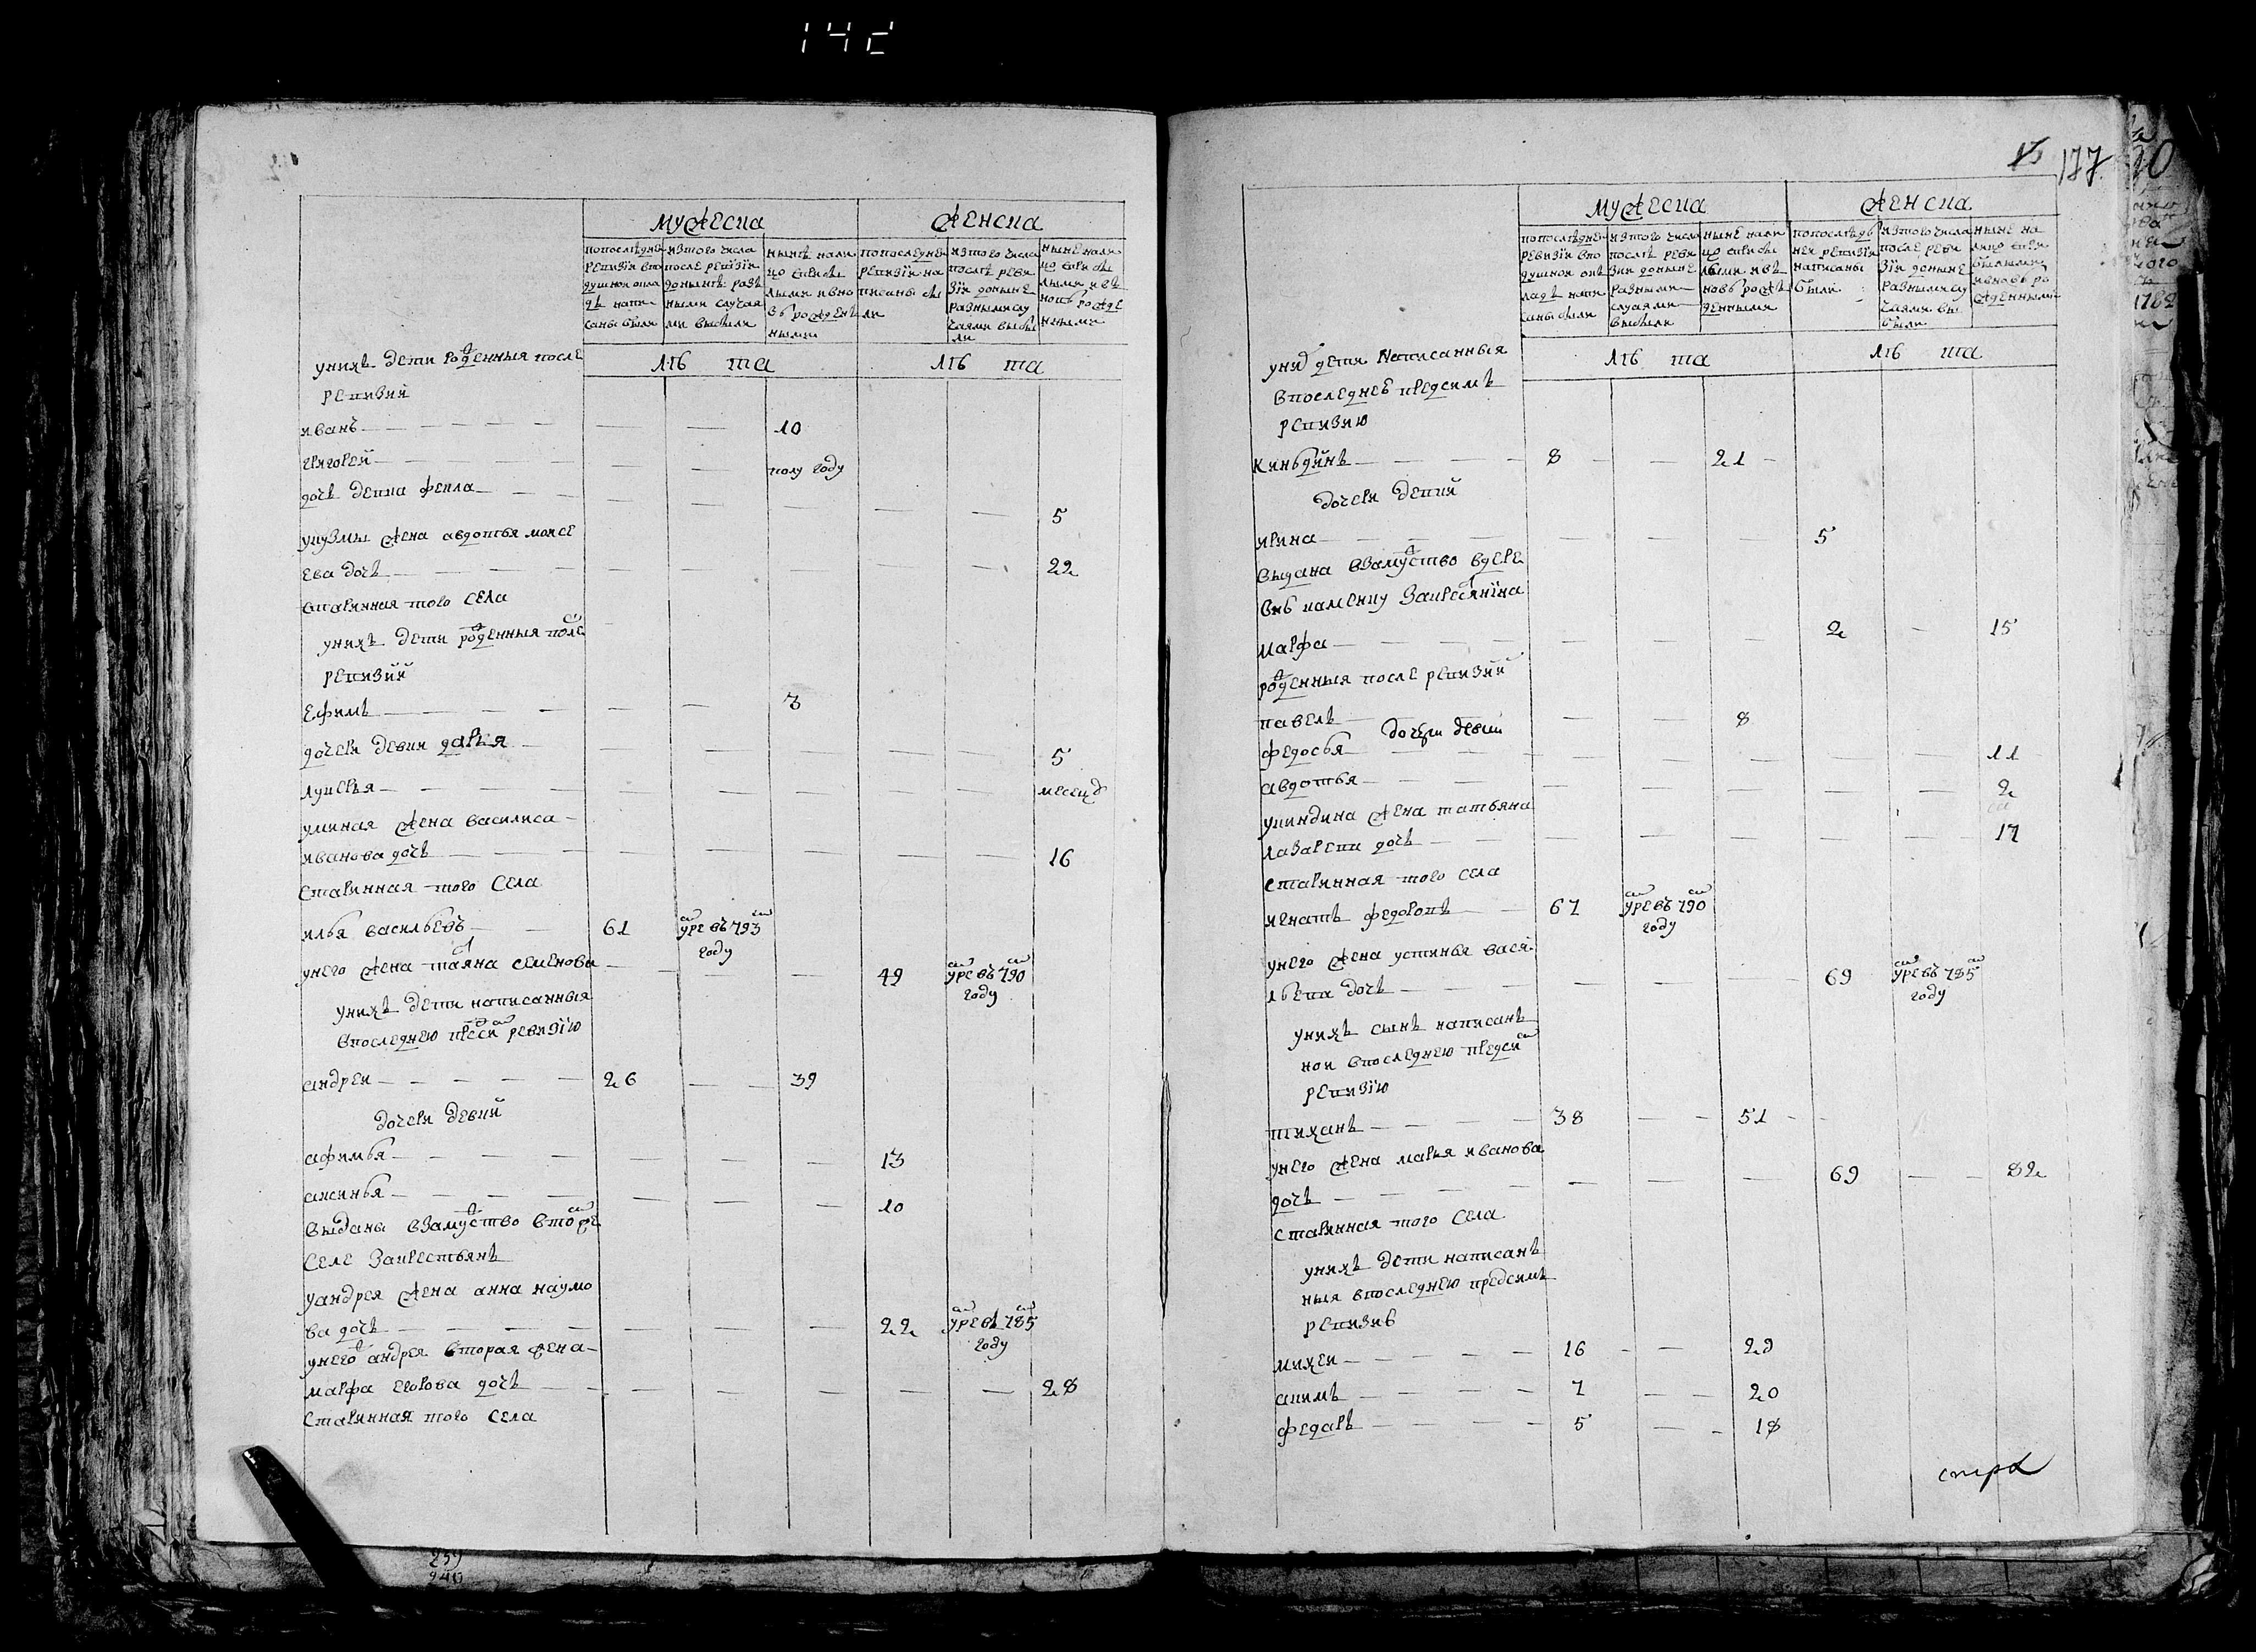 14d
мужеска
женска
попоследнеи ревизіи вподушнои окладъ написаны были
изтого числа после ревизіи донынѣ разными случаями выбыли
нынѣ налицо сприбылыми ивновь рожденными
попоследней ревизіи написаны были
изтого числа послѣ ревизіи донынѣ разными случаями выбыли
нынѣ налицо сприбылыми ивновь рожденными
лѣта
лѣта
унихъ дети рожденныя после
ревизий
иванъ 10
григореи полу году
дочь девка фекла 5
укузмы жена авдотья мокее
ева дочь 22
старинная того села
унихъ дети рожденныя посл
ревизий
ефимъ 3
дочери девки дарья 5
лукерья месецъ
ужиная жена василиса
иванова дочь 16
старинная того села
илья васильевъ 61 умре въ 793м году
унего жена татяна семенова 49 умре въ 790м году
унихъ дети написанныя
впоследнею предсим ревизію
андреи 26 39
дочери девки
афимья 13
аксинья 10
выданы взамужство втомже
селе закрестьянъ
уандрея жена анна наумо
ва дочь 22 умре въ 785м году
унего андрея вторая жена
марфа егорова дочь 28
старинная того села
15 177
мужеска
женска
попоследнеи ревизіи вподушнои окладъ написаны были
изтого числа послѣ ревизіи донынѣ разными случаями выбыли
ныне налицо сприбылыми ивновь рожденными
попоследнеи ревизіи написаны были
изтого числа после ревизіи донынѣ разными случаями выбыли
ныне налицо сприбылыми ивновь рожденными
лѣта
лѣта
унихъ дети написанныя
впоследнеѣ предсимъ
ревизию
киньдинъ 8 21
дочери девки
ирина 5
выдана взамужство вдере
внѣ каменку закресянина
марфа 2 15
рожденныя после ревизий
павелъ 8
дочери девки
федосья 11
авдотья 2
укиндина жена татьяна
лазарева дочь 17
старинная того села
игнатъ федоровъ 67 умре въ 790м году
унего жена устинья васи
льева дочь 69 умре въ 785м году
унихъ сынъ написанъ
нои впоследнею предсим
ревизію
тиханъ 38 51
унего жена марья иванова
дочь 69 82
старинная того села
унихъ дети написанъ
ныя впоследнею предсимъ
ревизиѣ
михеи 16 29
акимъ 7 20
федаръ 5 18